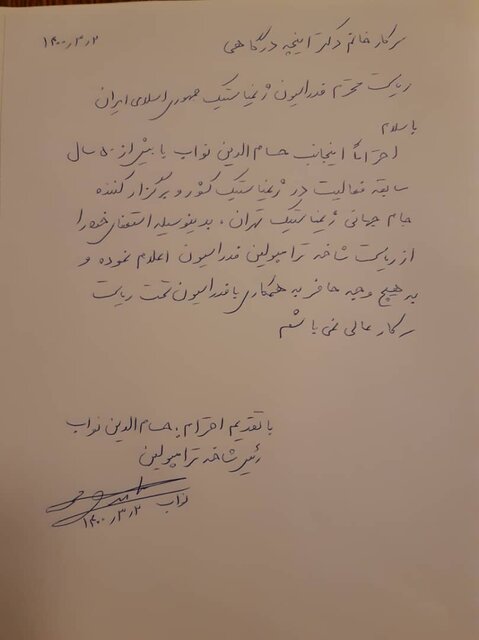 ۱۴۰۰/۳/۲
سرکار خانم دکتر اینچه درگاهی
ریاست محترم فدراسیون ژیمناستیک جمهوری اسلامی ایران
باسلام
احتراماً اینجانب حسام الدین نواب با بیش از ۵۰ سال
سابقه فعالیت در ژیمناستیک کشور و برگزار کننده
جام جهانی ژیمناستیک تهران، بدینوسیله استعفای خود را
از ریاست شاخه ترامپولین فدراسیون اعلام نموده و
به هیچ وجه حاضر به همکاری با فدراسیون تحت ریاست
سرکار عالی نمی باشم
با تقدیم احترام، حسام الدین نواب
رئیس شاخه ترامپولین
نواب
۱۴۰۰/۳/۲